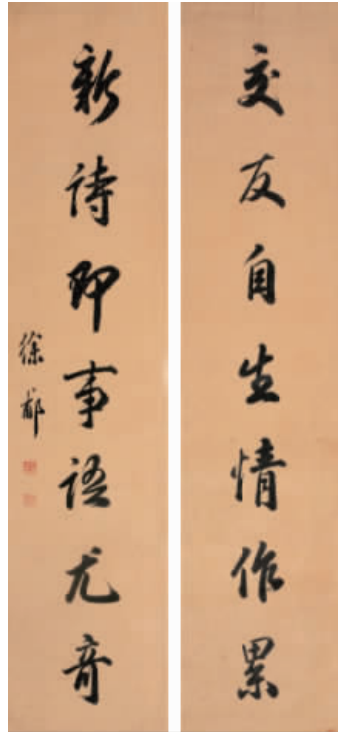 交友自生情作累
新詩即事語尤奇
徐郙